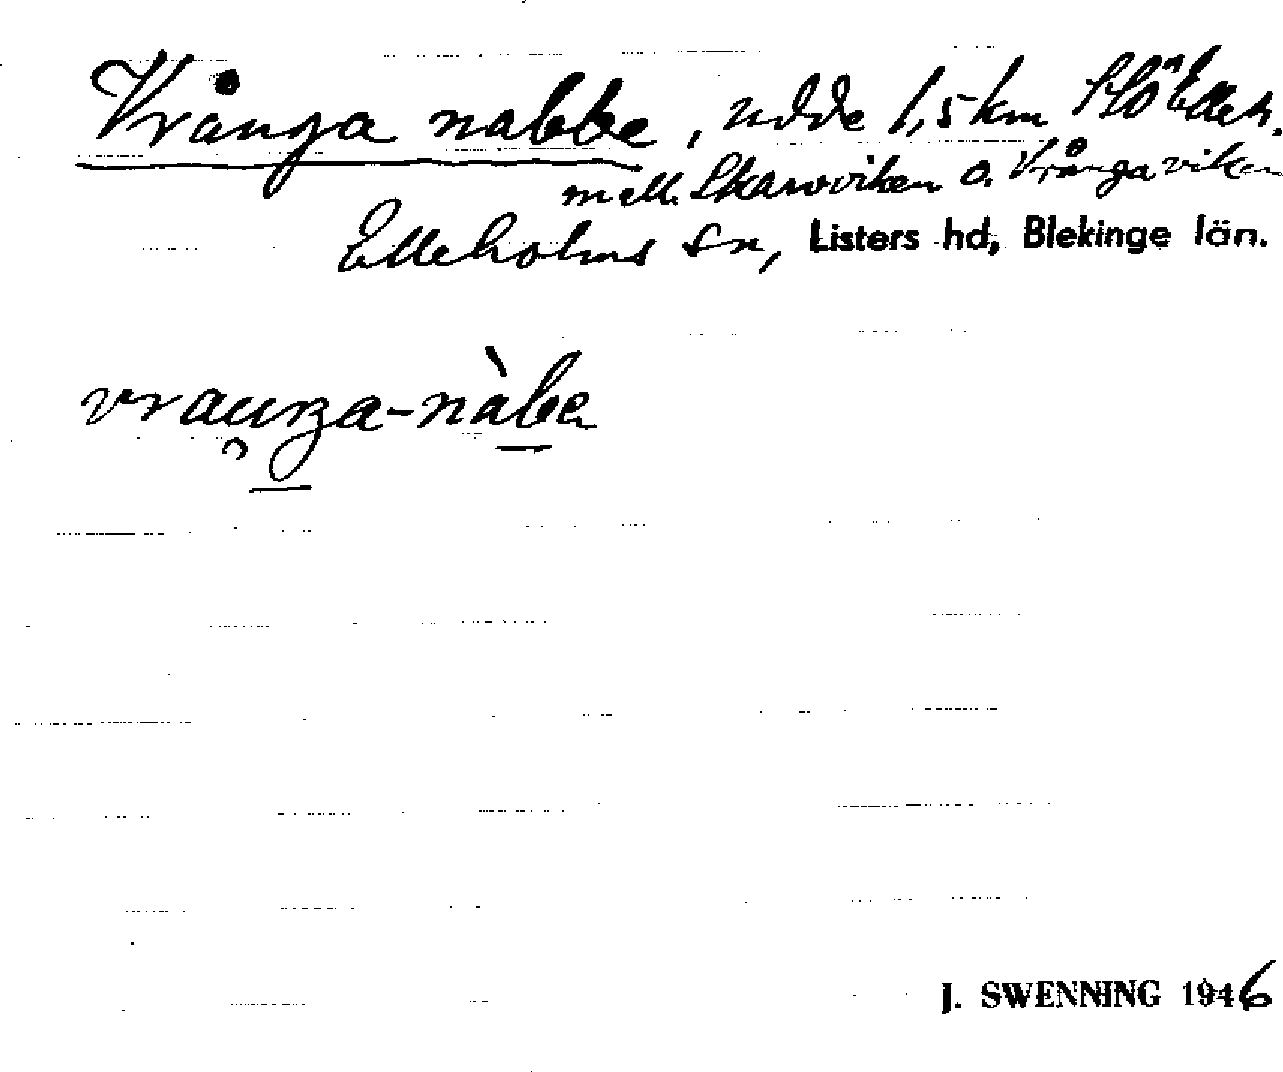 Vrånga nabbe, udde 1,5 km SO
mell. Skarvviken o. Vrångaviken
Elleholms sn, Listers hd, Blekinge län.
vraunga-nàbe
J. SWENNING 1946